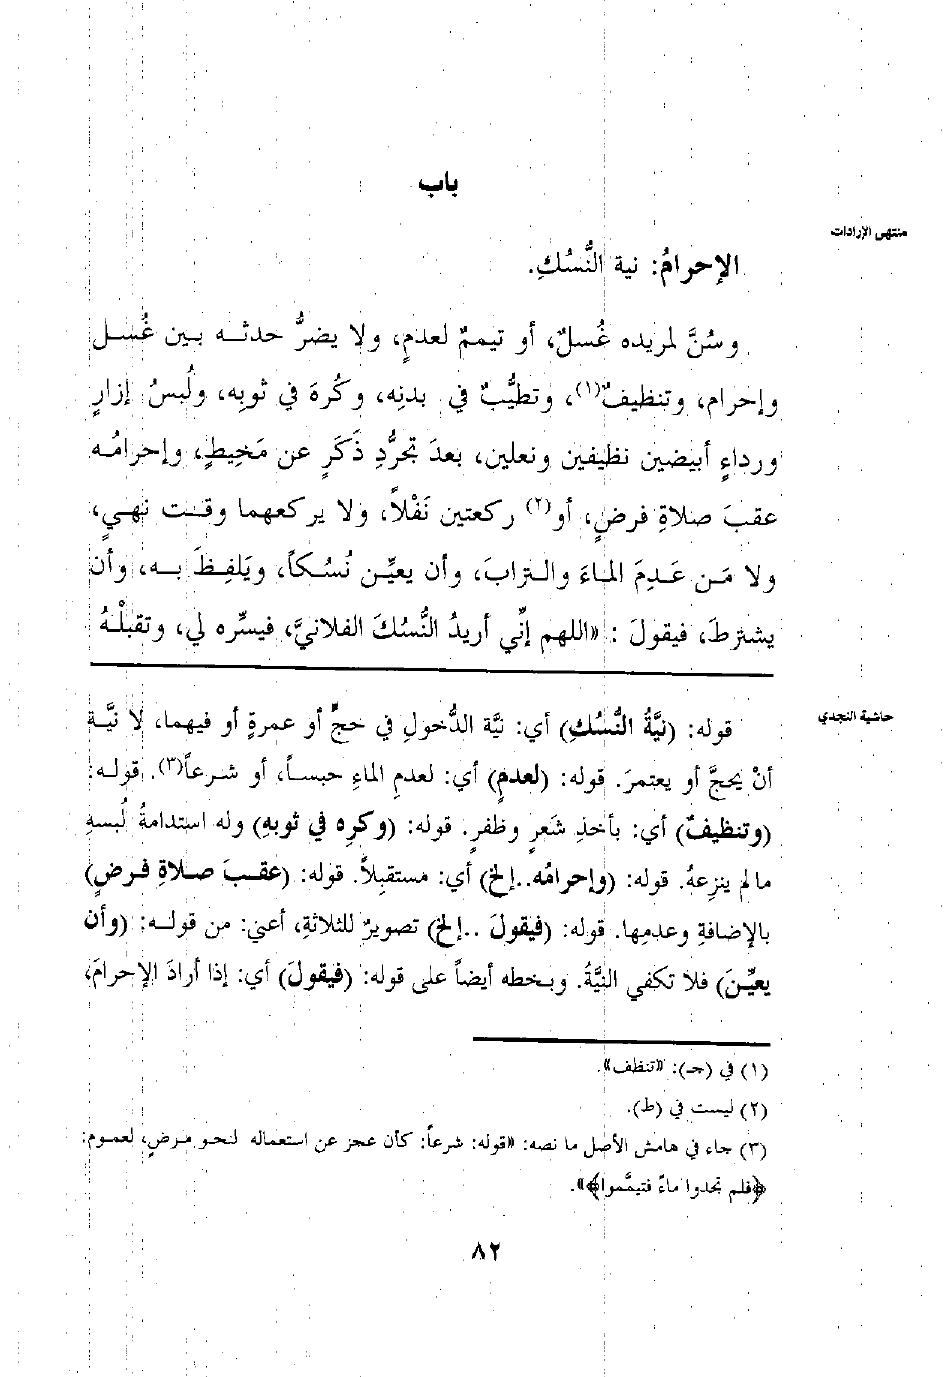 باب
منتهى الإرادات
الإحرامُ: نية النُّسُكِ.
وسُنَّ لمريده غُسلٌ، أو تيممٌ لعدمٍ، ولا يضرُّ حدثه بين غُسل
وإحرام، وتنظيفٌ(١)، وتطيُّبٌ في بدنِه، وكُرهَ في ثوبِه، ولُبسُ إزارٍ
ورداءٍ أبيضين نظيفين ونعلين، بعدَ تجرُّدِ ذَكَرٍ عن مَخِيطٍ، وإحرامُه
عقبَ صلاةِ فرضٍ، أو(٢) ركعتين نَفْلاً، ولا يركعهما وقت نهيٍ،
ولا مَن عَدِمَ الماءَ والترابَ، وأن يعيِّن نُسُكاً، ويَلفِظَ به، وأن
يشترطَ، فيقولَ: «اللهم إنِّي أريدُ النُّسُكَ الفلانيَّ، فيسِّره لي، وتقبلْهُ
حاشية النجدي
قوله: (نيَّةُ النُّسُكِ) أي: نيَّة الدُّخولِ في حجٍّ أو عمرةٍ أو فيهما، لا نيَّة
أنْ يحجَّ أو يعتمرَ. قوله: (لعدمٍ) أي: لعدمِ الماءِ حبساً، أو شرعاً(٣). قوله:
(وتنظيفٌ) أي: بأخذِ شَعرٍ وظفرٍ. قوله: (وكرِه في ثوبِه) وله استدامةُ لُبسهِ
مالم ينزِعهُ. قوله: (وإحرامُه..إلخ) أي: مستقبِلاً. قوله: (عقبَ صلاةِ فرضٍ)
بالإضافةِ وعدمِها. قوله: (فيقولَ ..إلخ) تصويرٌ للثلاثةِ، أعني: من قوله: (وأن
يعيِّنَ) فلا تكفي النِّيَّةُ. وبخطه أيضاً على قوله: (فيقولَ) أي: إذا أرادَ الإحرامَ،
(١) في (حـ): «تنظف».
(٢) ليست في (ط).
(٣) جاء في هامش الأصل ما نصه: «قوله: شرعاً: كأن عجز عن استعماله لنحو مرضٍ، لعموم:
﴿فلم تجدوا ماءً فتيمَّموا﴾».
٨٢